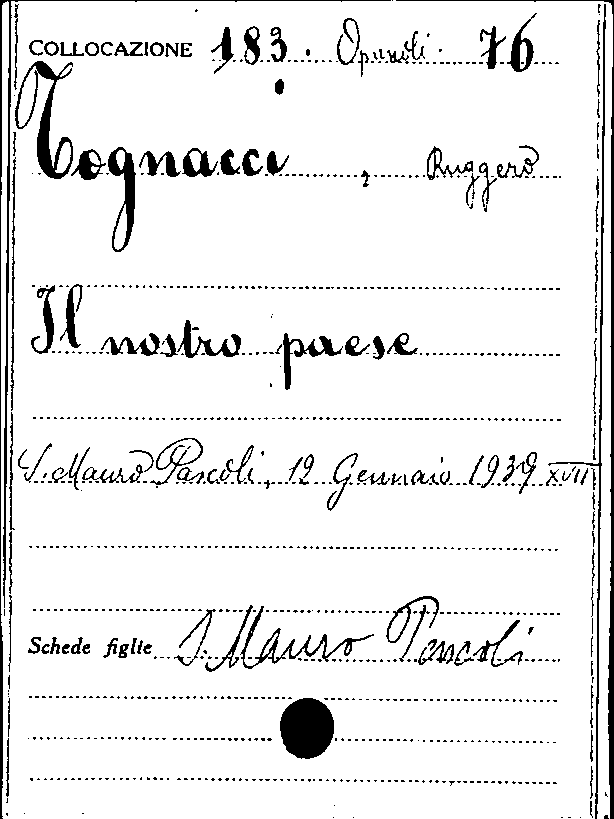 COLLOCAZIONE 183. Opuscoli. 76
Tognacci, Ruggero
Il nostro paese
S. Mauro Pascoli, 12 Gennaio 1939 XVII
Schede figlie S. Mauro Pascoli